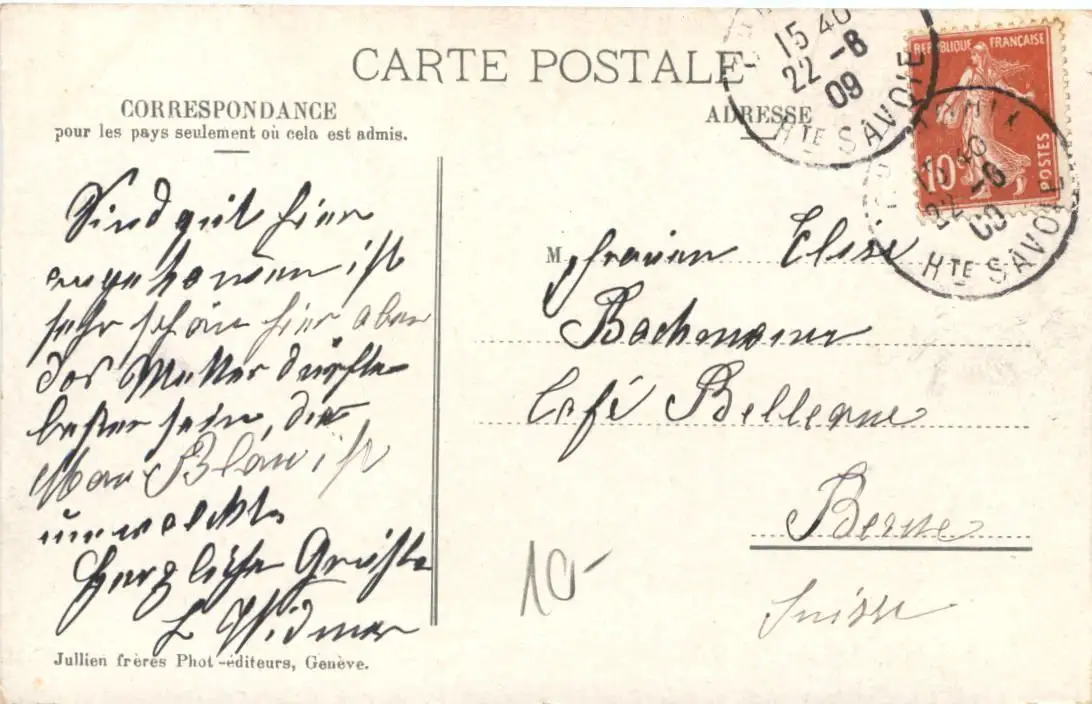 CARTE POSTALE
CORRESPONDANCE
pour les pays seulement où cela est admis.
ADRESSE
15 40
22 -8
09
HTE SAVOIE
REPUBLIQUE FRANÇAISE
10
POSTES
15 40
22 -8
09
HTE SAVOIE
Sind gut hier
angekomen ist
sehr schön hier aber
das Wetter dürfte
besser sein, der
Blan ist
umwolckt
Herzliche Grüsse
L Widmer
M Frauen Elise
Bachmann
Café Bellevue
Berne
Suisse
10-
Jullien frères Phot-éditeurs, Genève.